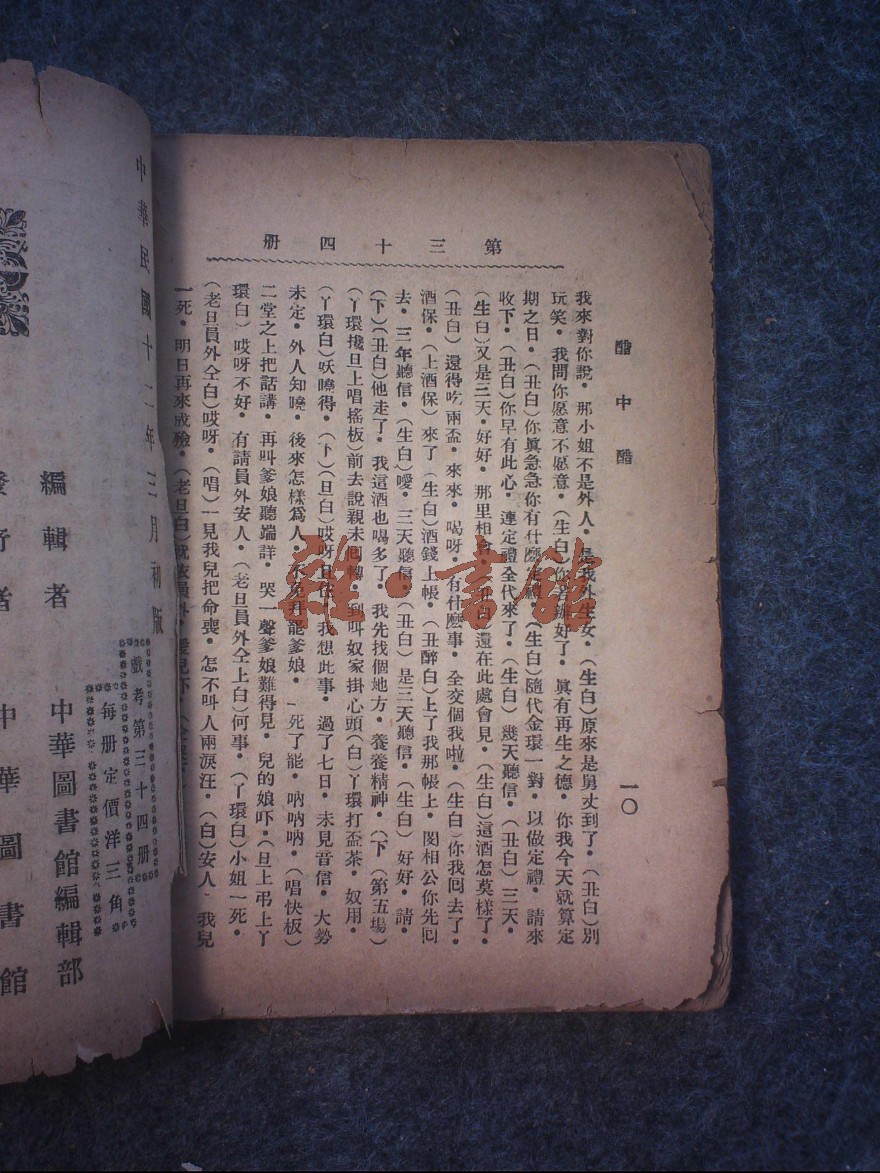 醋中醋
一〇
第三十四册
我來對你說•那小姐不是外人•是我外生女•(生白)原來是舅丈到了•(丑白)別
玩笑•我問你愿意不愿意•(生白)你若辦好了•眞有再生之德•你我今天就算定
期之日•(丑白)你眞急急你有什麽定禮•(生白)隨代金環一對•以做定禮•請來
收下•(丑白)你早有此心•連定禮全代來了•(生白)幾天聽信•(丑白)三天•
(生白)又是三天•好好•那里相會•(丑白)還在此處會見•(生白)這酒怎莫樣了•
(丑白)還得吃兩盃•來來•喝呀•有什麽事•全交個我啦•(生白)你我囘去了•
酒保•(上酒保)來了(生白)酒錢上帳•(丑醉白)上了我那帳上•閔相公你先囘
去•三年聽信•(生白)噯•三天聽信•(丑白)是三天聽信•(生白)好好•請•
(下)(丑白)他走了•我這酒也喝多了•我先找個地方•養養精神•(下)(第五場)
(丫環攙旦上唱搖板)前去說親未囘轉•到叫奴家掛心頭(白)丫環打盃茶•奴用•
(丫環白)妖曉得•(下)(旦白)哎呀且住•我想此事•過了七日•未見音信•大勢
未定•外人知曉•後來怎樣爲人•不免拜罷爹娘•一死了罷•吶吶吶•(唱快板)
二堂之上把話講•再叫爹娘聽端詳•哭一聲爹娘難得見•兒的娘吓•(旦上弔上丫
環白)哎呀不好•有請員外安人•(老旦員外仝上白)何事•(丫環白)小姐一死•
(老旦員外仝白)哎呀•(唱)一見我兒把命喪•怎不叫人兩淚汪•(白)安人•我兒
一死•明日再來成殮•(老旦白)就依員外•
中華民國十二年三月初版
戲考第三十四册
每册定價洋三角
編輯者 中華圖書館編輯部
發行者 中華圖書館
雜·書館